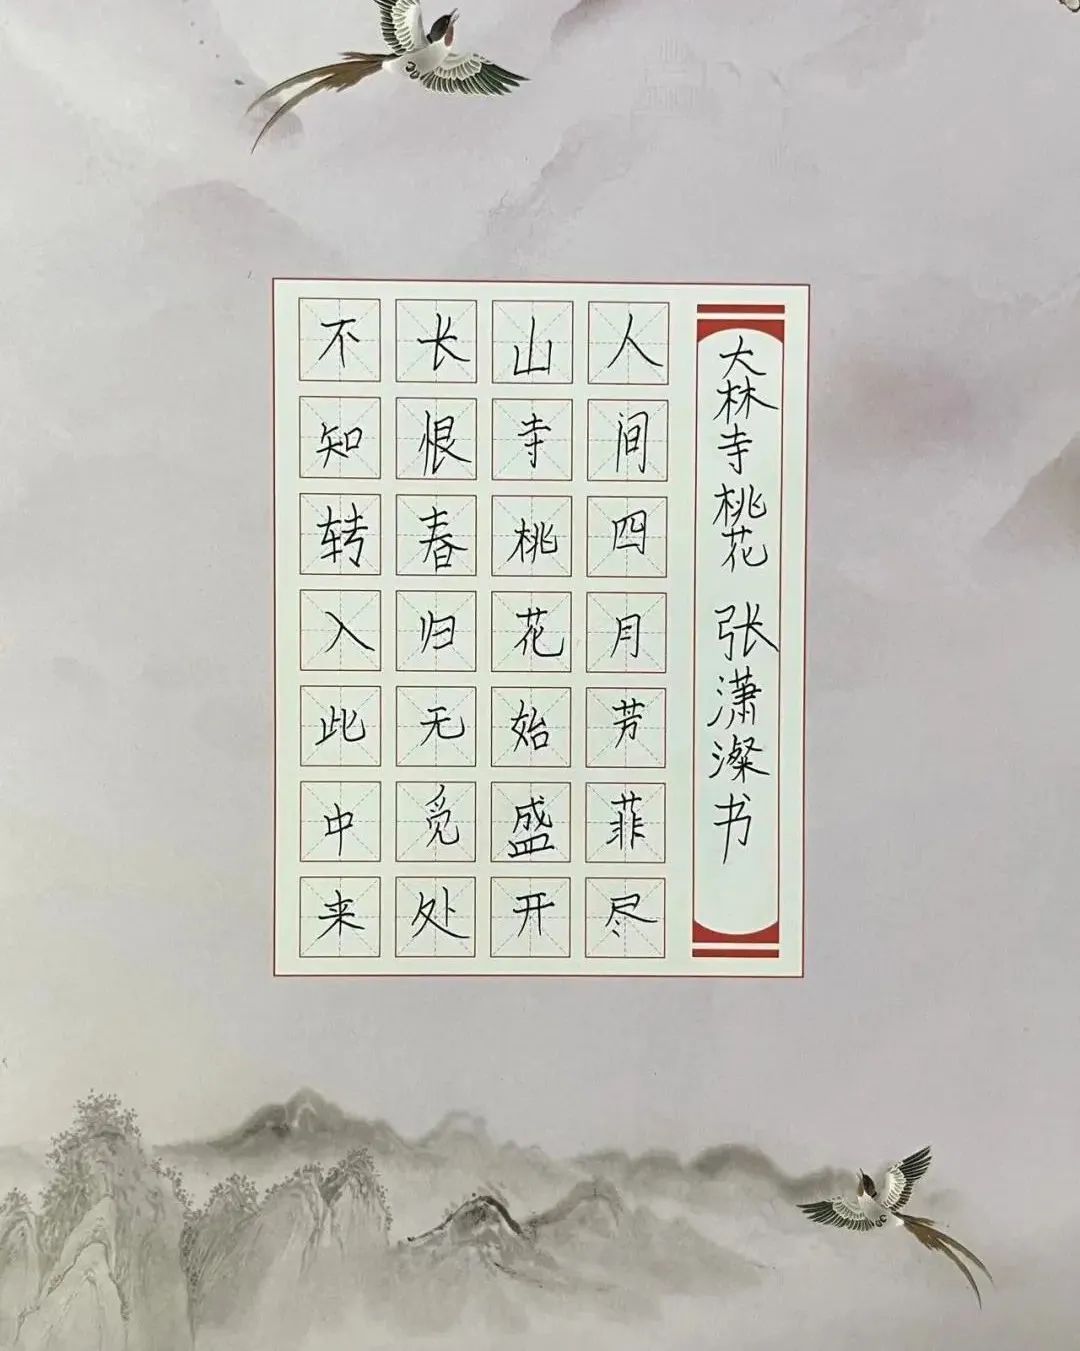 大林寺桃花 张潇澯书
人间四月芳菲尽
山寺桃花始盛开
长恨春归无觅处
不知转入此中来